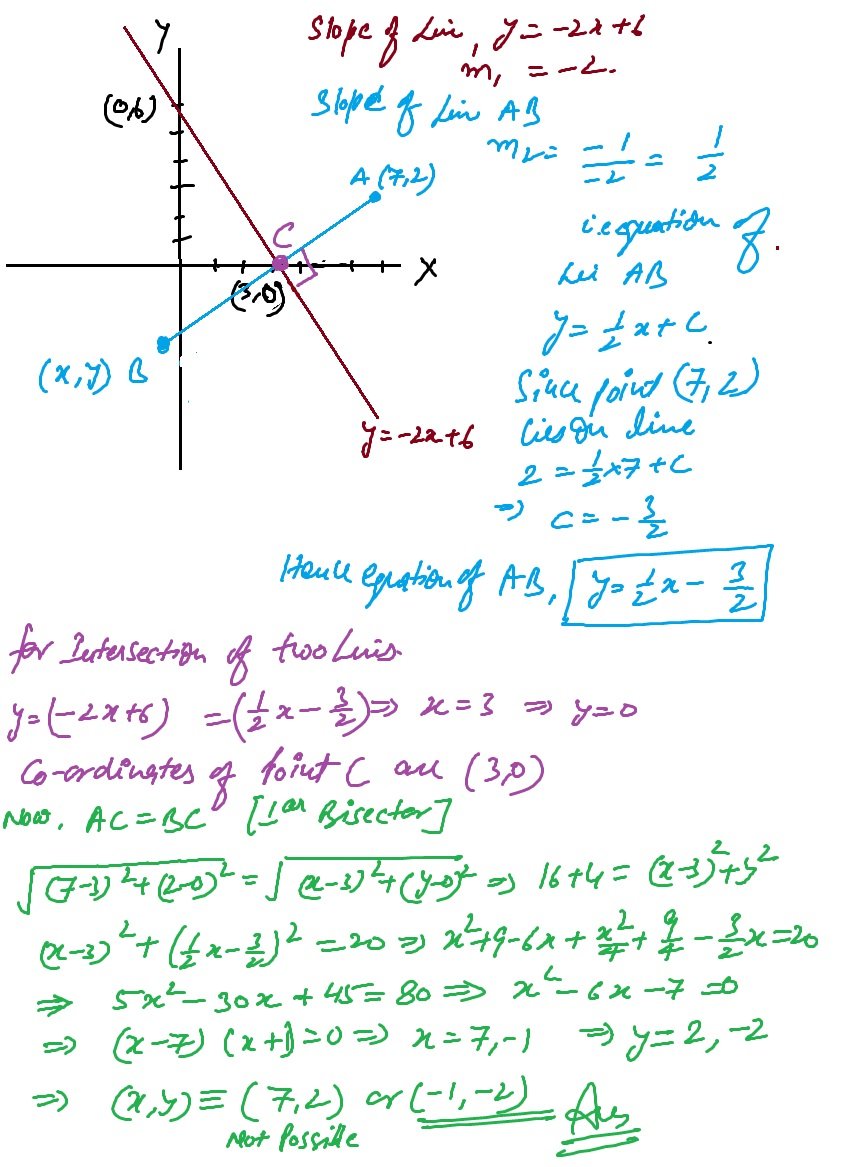 Y
Slope of Line, y = -2x+6
m₁ = -2.
(0,6)
Slope of Line AB
m₂ = -1/-2 = 1/2
A (7,2)
i.e equation of
Line AB
C
X
(3,0)
y = 1/2 x + C.
(x,y) B
Since point (7,2)
lies on line
y=-2x+6
2 = 1/2 x7 + C
⇒ C = -3/2
Hence equation of AB, y = 1/2 x - 3/2
for Intersection of two Lines
y=(-2x+6) = (1/2 x - 3/2) ⇒ x=3 ⇒ y=0
Co-ordinates of Point C are (3,0)
Now, AC = BC [⊥ar Bisector]
√(7-3)²+(2-0)² = √(x-3)²+(y-0)² ⇒ 16+4 = (x-3)²+y²
(x-3)² + (1/2 x - 3/2)² = 20 ⇒ x²+9-6x + x²/4 + 9/4 - 3/2 x = 20
⇒ 5x² - 30x + 45 = 80 ⇒ x² - 6x - 7 = 0
⇒ (x-7) (x+1) = 0 ⇒ x = 7,-1 ⇒ y = 2, -2
⇒ (x,y) ≡ (7,2) or (-1,-2) Ans
Not Possible